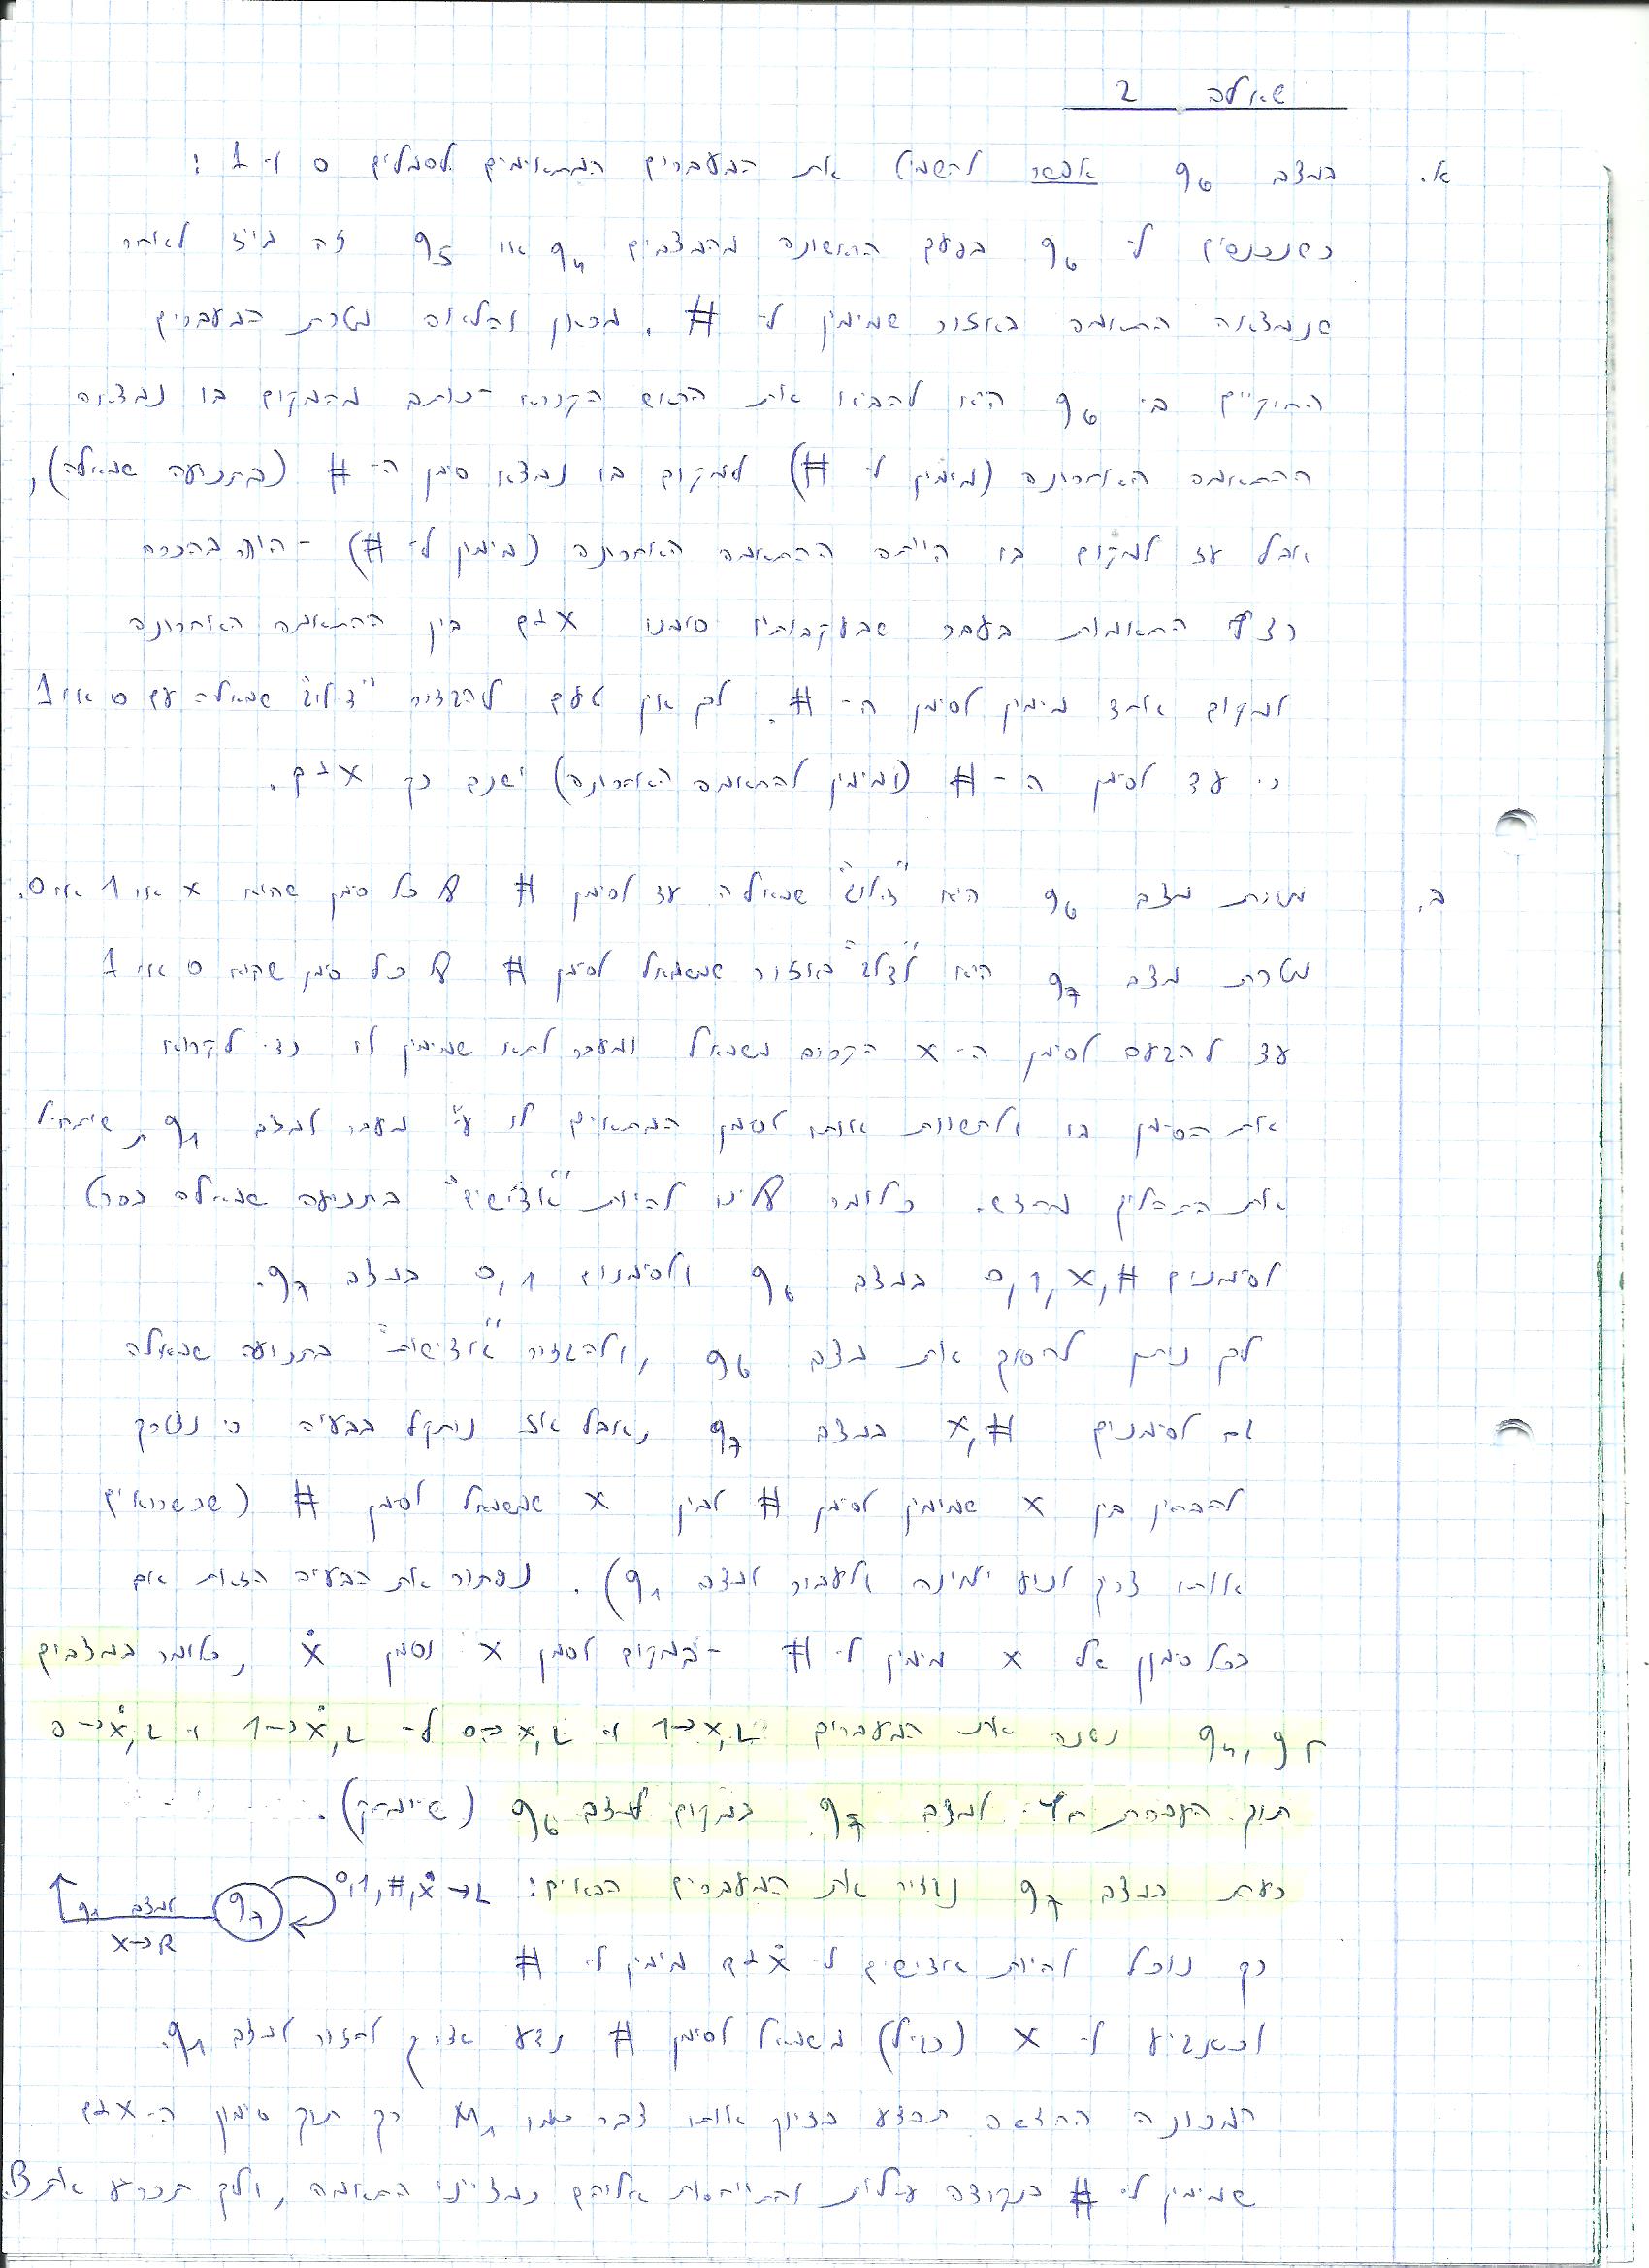 שאלה 2
א. במצב q6 אפשר להשמיט את המעברים המתאימים לסמלים 0 ו- 1 :
כשנכנסים ל- q6 בפעם הראשונה מהמצבים q4 או q5 זה מיד לאחר
שנמצאה התאמה באזור שמימין ל- # . מכאן והלאה מטרת המעברים
החוקיים ב- q6 היא להביא את הראש הקורא-כותב מהמקום בו נמצאה
ההתאמה האחרונה (מימין ל- #) למקום בו נמצא סימן ה- # (בתנועה שמאלה),
אבל עד למקום בו הייתה ההתאמה האחרונה (מימין ל- #) - היה בהכרח
רצף התאמות בעבר שבעקבותיו סומנו X-ים בין ההתאמה האחרונה
למקום אחד מימין לסימן ה- #. לכן אין טעם להגדיר "דילוג" שמאלה עם 0 או 1
כי עד לסימן ה- # (ומימין להתאמה האחרונה) ישנם רק X-ים.
ב. מטרת מצב q6 היא "דילוג" שמאלה עד לסימן # על כל סימן שהוא x או 1 או 0.
מטרת מצב q7 היא "לדלג" באזור שמשמאל לסימן # על כל סימן שהוא 0 או 1
עד להגעה לסימן ה- x הקרוב משמאל ומעבר לתא שמימין לו כדי לקרוא
את הסימן בו ולהשוות אותו לסימן המתאים לו ע"י מעבר למצב q1 שיתחיל
את התהליך מחדש. כלומר עלינו להיות "אדישים" בתנועה שמאלה בסרט
לסימנים 0,1,x,# במצב q6 ולסימנים 0,1 במצב q7.
לכן ניתן לחסוך את מצב q6 , ולהגדיר "אדישות" בתנועה שמאלה
גם לסימנים x,# במצב q7 , אבל אז ניתקל בבעיה כי נצטרך
להבחין בין x שמימין לסימן # לבין x שמשמאל לסימן # (שכשרואים
אותו צריך לנוע ימינה ולעבור למצב q1). נפתור את הבעיה הזאת אם
בכל סימון של x מימין ל- # - במקום לסמן x נסמן ẋ , כלומר במצבים
q4, q5 נשנה את המעברים 1→x,L ו- 0→x,L ל- 1→ẋ,L ו- 0→ẋ,L
תוך העברת למצב q7 במקום למצב q6 (שיימחק).
כעת במצב q7 נגדיר את המעברים הבאים: 0,1,#,ẋ→L q7 x→R למצב q1
כך נוכל להיות אדישים ל- ẋ-ים מימין ל- #
וכשנגיע ל- x (רגיל) משמאל לסימן # נדע שצריך לחזור למצב q1.
המכונה החדשה תבצע בדיוק אותו דבר כמו M1 רק תוך סימון ה- x-ים
שמימין ל- # בנקודה עילית והתייחסות אליהם כמצייני התאמה, ולכן תכריע את B.